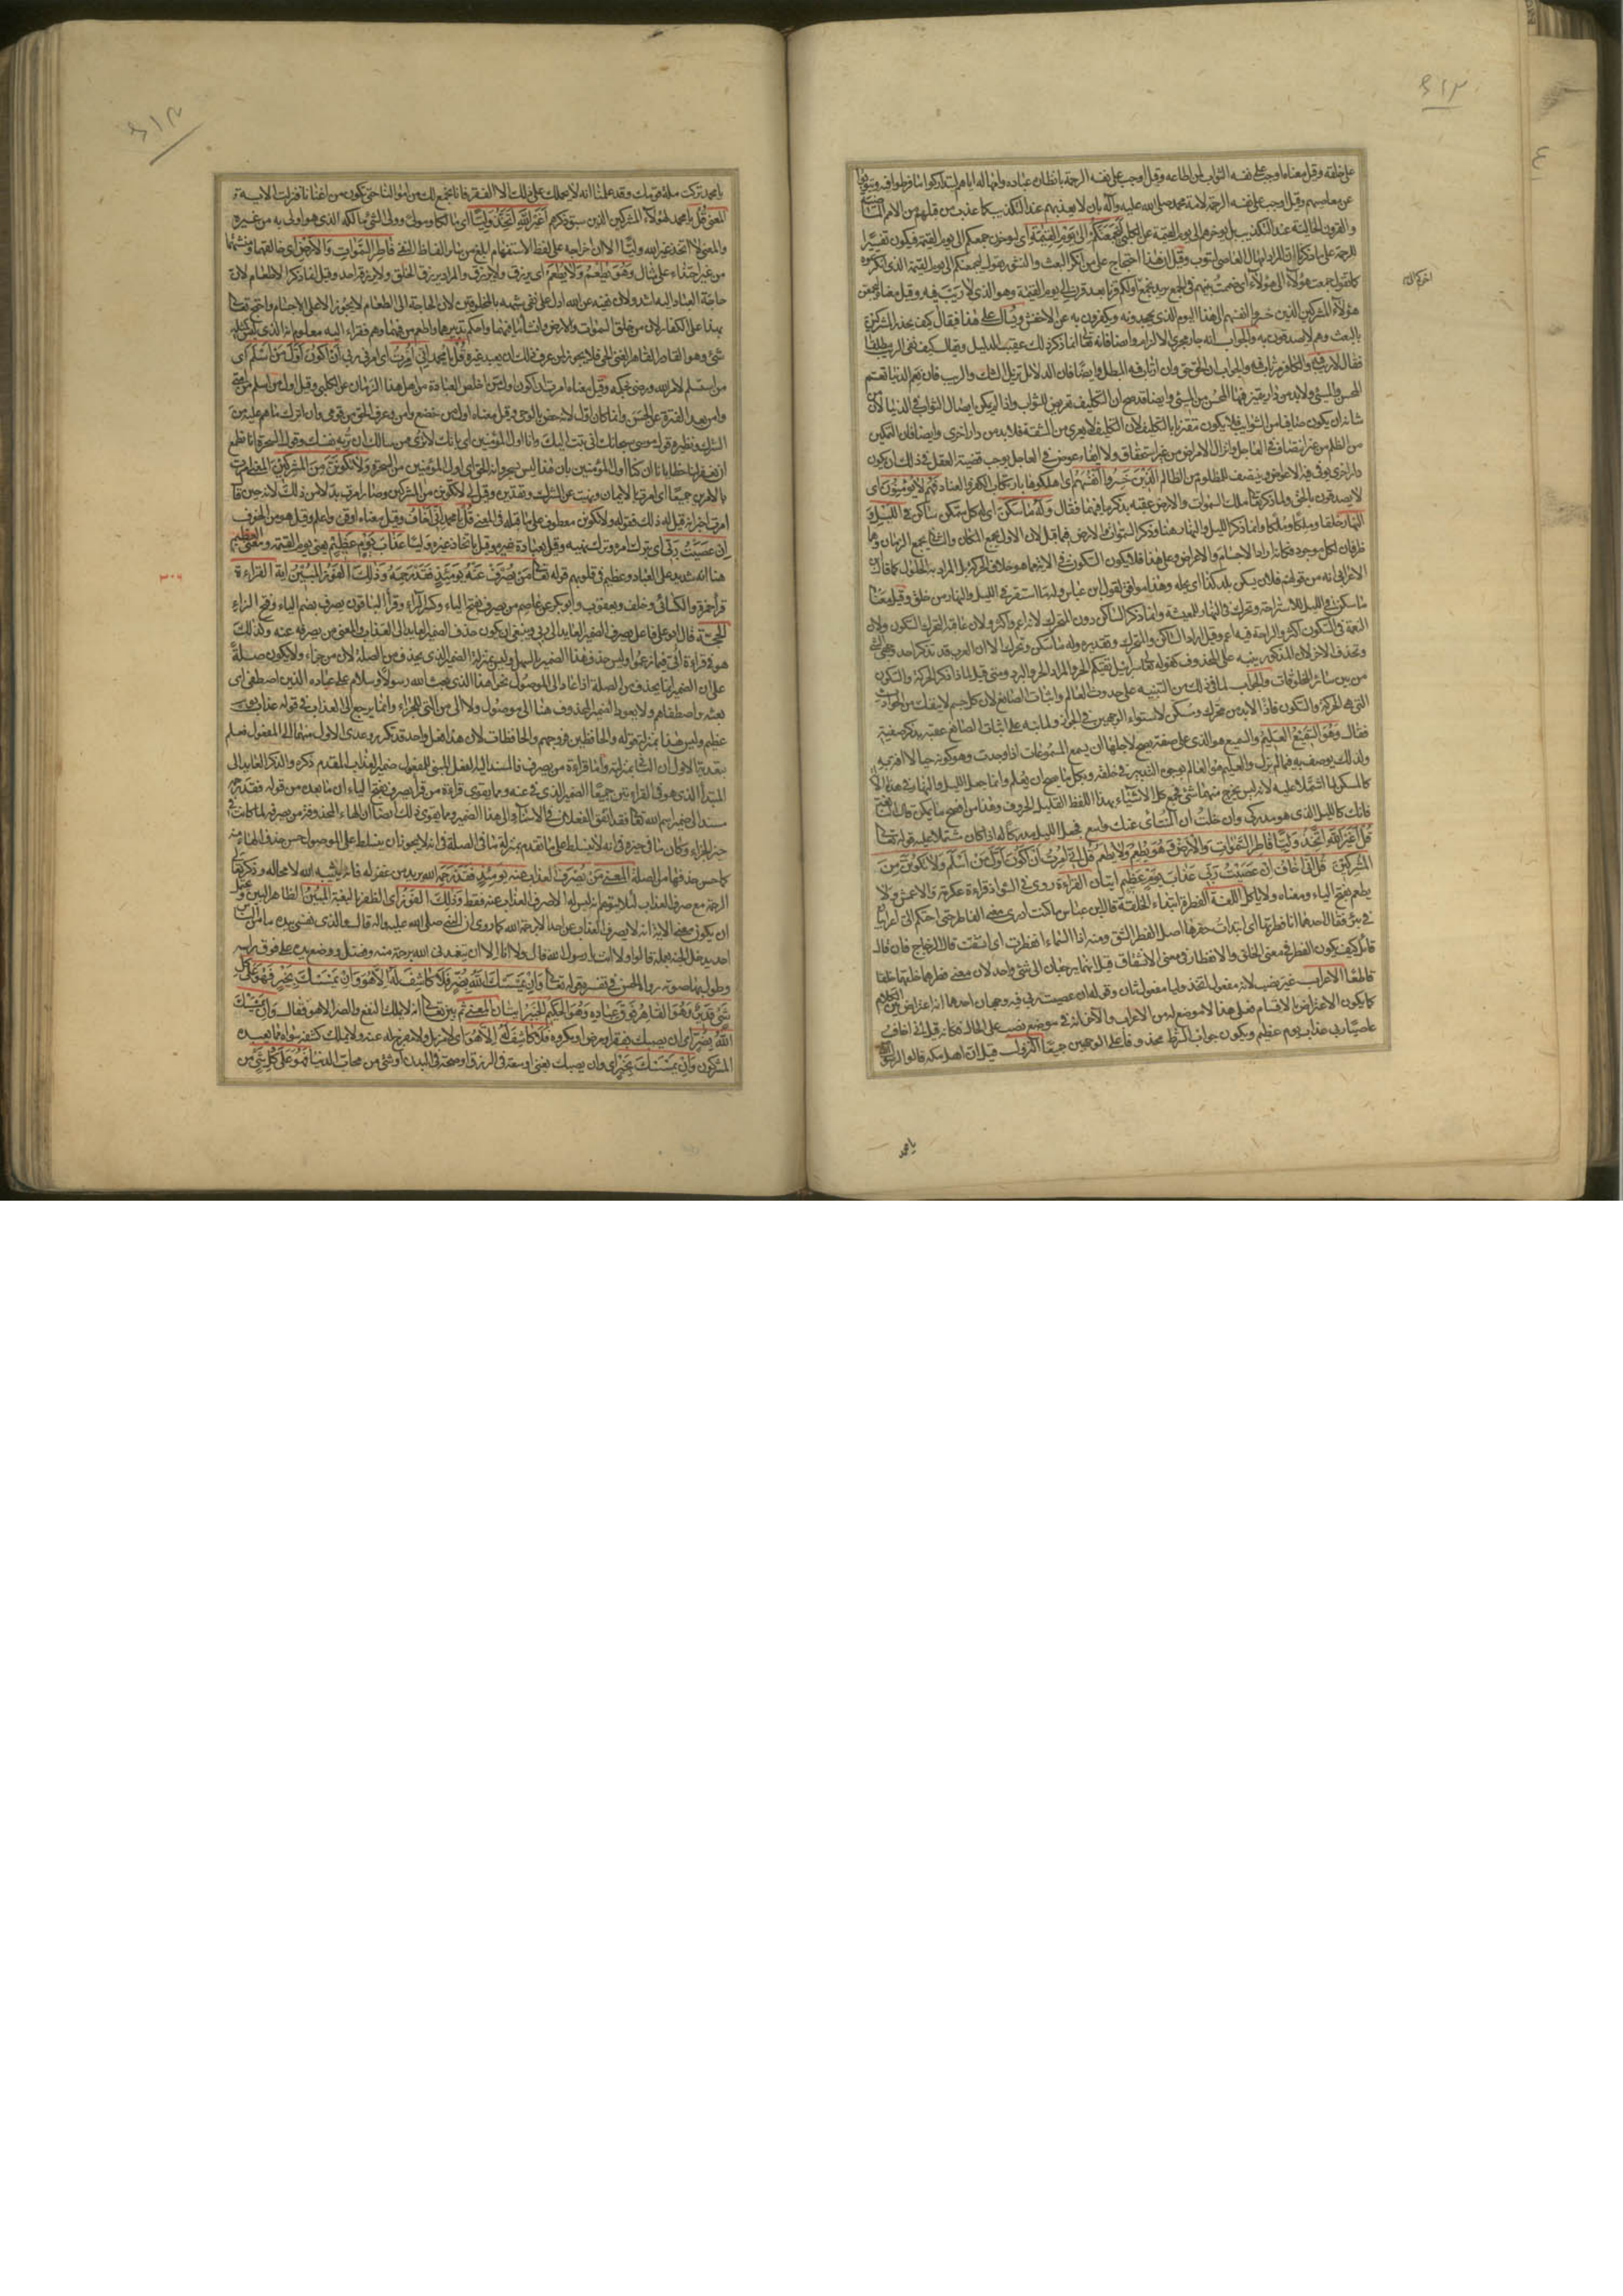 على خلقه وقيل معناه اوجب على نفسه الثواب لمن اطاعه وقيل اوجب على نفسه الرحمة بانظاره عباده وامهاله اياهم ليتداركوا ما فرطوا فيه ويتوبوا
عن معاصيهم وقيل اوجب على نفسه الرحمة لامة محمد صلى الله عليه وآله بان لا يعذبهم عند التكذيب كما عذب من قبلهم من الامم
والقرون الخالية عند التكذيب بل يؤخرهم الى يوم القيمة عن الكلبي ليجمعنكم الى يوم القيمة اى ليؤخرن جمعكم الى يوم القيمة فيكون تفسيرا
للرحمة على ما ذكرنا ان المراد به امهال العاصى ليتوب وقيل ان هذا احتجاج على من انكر البعث والنشور يقول ليجمعنكم الى يوم القيمة الذى انكرتموه
كما تقول جمعت هؤلاء الى هؤلاء اى ضممت بينهم فى الجمع يريد يجمع اولكم قرنا بعد قرن الى يوم القيمة وهو الذى لا ريب فيه وقيل معناه
هؤلاء المشركين الذين خسروا انفسهم الى هذا اليوم الذى يجحدونه ويكفرون به عن الاخفش ويسأل على هذا فيقال كيف يحذر المشركين
بالبعث وهم لا يصدقون به والجواب انه جار مجرى الالزام وايضا فانه تعالى انما ذكر ذلك عقيب الدليل ويقال كيف نفى الريب مطلقا
فقال لا ريب فيه والكافر مرتاب فيه والجواب ان الحق حق وان ارتاب فيه المبطل وايضا فان الدلائل تزيل الشك والريب فان نعيم الدنيا تعم
المحسن والمسئ ولا بد من دار يتميز فيها المحسن من المسئ وايضا قد صح ان التكليف تعريض للثواب واذا لم يمكن ايصال الثواب فى الدنيا لان
شانه ان يكون صافيا من الشوائب فلا يكون مقترنا بالتكليف لان التكليف لا يعرى من المشقة فلا بد من دار اخرى وايضا فان التمكين
من الظلم من غير انتصاف فى العاجل وانزال الامراض من غير استحقاق ولا ايفاء عوض فى العاجل يوجب قضية العقل فى ذلك ان يكون
دار اخرى يوفى فيها الاعواض وينتصف للمظلوم من الظالم الذين خسروا انفسهم اى اهلكوها بارتكاب الكفر والعناد فهم لا يؤمنون اى
لا يصدقون بالحق ولما ذكر تعالى ملك السموات والارض عقبه بذكر ما فيهما فقال وله ما سكن اى له كل متمكن ساكن فى الليل و
النهار خلقا وملكا وملكا وانما ذكر الليل والنهار هنا وذكر السموات والارض فيما قبل لان الاول يجمع المكان والثانى يجمع الزمان وهما
ظرفان لكل موجود فكانه اراد الاجسام والاعراض وعلى هذا فلا يكون السكون فى الاية ما هو خلاف الحركة بل المراد به الحلول كما قال
الاعرابى انه من قولهم فلان يسكن بلد كذا اى يحله وهذا موافق لقول ابن عباس وله ما استقر فى الليل والنهار من خلق وقيل معناه
ما سكن فى الليل للاستراحة وتحرك فى النهار للمعيشة وانما ذكر الساكن دون المتحرك لانه اعم واكثر ولان عاقبة التحرك السكون ولان
النعمة فى السكون اكثر والراحة فيه اعم وقيل اراد الساكن والمتحرك وتقديره وله ما سكن وتحرك الا ان العرب قد تذكر احد وجهى الشئ
وتحذف الاخر لان المذكور ينبه على المحذوف كقوله تعالى سرابيل تقيكم الحر والمراد الحر والبرد ومتى قيل لماذا ذكر الحركة والسكون
من بين سائر المخلوقات والجواب لما فى ذلك من التنبيه على حدوث العالم واثبات الصانع لان كل جسم لا ينفك من الحوادث
التى هى الحركة والسكون فاذا لا بد من محرك ومسكن لاستواء الوجهين فى الجواز ولما نبه على اثبات الصانع عقبه بذكر صفته
فقال وهو السميع العليم والسميع هو الذى على صفة يصح لاجلها ان يسمع المسموعات اذا وجدت وهو كونه حيا لا افة به
ولذلك يوصف به فيما لم يزل والعليم هو العالم بوجوه التدبير فى خلقه وبكل ما يصح ان يعلم وانما جعل الليل والنهار فى هذه الاية
كالمسكن لما اشتملا عليه لانه ليس يخرج منهما شئ فجمع كل الاشياء بهذا اللفظ القليل الحروف وهذا من افصح ما يمكن كما قال النابغة
فانك كالليل الذى هو مدركى وان خلت ان المنتأى عنك واسع فجعل الليل مدركا له اذا كان مشتملا عليه قوله تعالى
قل اغير الله اتخذ وليا فاطر السموات والارض وهو يطعم ولا يطعم قل انى امرت ان اكون اول من اسلم ولا تكونن من
المشركين قل انى اخاف ان عصيت ربى عذاب يوم عظيم ايتان القراءة روى فى الشواذ قراءة عكرمة والاعمش ولا
يطعم بفتح الياء ومعناه ولا ياكل اللغة الفطرة ابتداء الخلقة قال ابن عباس ما كنت ادرى معنى الفاطر حتى احتكم الى اعرابيان
فى بئر فقال احدهما انا فطرتها اى ابتدات حفرها واصل الفطر الشق ومنه اذا السماء انفطرت اى انشقت قال الزجاج فان قال
قائل كيف يكون الفطر فى معنى الخلق والانفطار فى معنى الانشقاق قيل انهما يرجعان الى شئ واحد لان معنى فطرهما خلقهما خلقا
قاطعا الاعراب غير نصب لانه مفعول اتخذ ووليا مفعول ثان وقوله ان عصيت ربى فيه وجهان احدهما انه اعتراض بين الكلام
كما يكون الاعتراض بالاقسام فعلى هذا لا موضع له من الاعراب والاخر انه فى موضع نصب على الحال فكانه قيل انى اخاف
عاصيا ربى عذاب يوم عظيم ويكون جواب الشرط محذوفا على الوجهين جميعا النزول قيل ان اهل مكة قالوا لرسول الله
يا محمد
يا محمد تركت ملة قومك وقد علمنا انه لا يحملك على ذلك الا الفقر فانا نجمع لك من اموالنا حتى تكون من اغنانا فنزلت الاية
المعنى قل يا محمد لهؤلاء المشركين الذين سبق ذكرهم اغير الله اتخذ وليا اى مالكا ومولى وولى الشئ مالكه الذى هو اولى به من غيره
والمعنى لا اتخذ غير الله وليا الا ان اخراجه على لفظ الاستفهام ابلغ من سائر الفاظ النفى فاطر السموات والارض اى خالقهما ومنشئهما
من غير احتذاء على مثال وهو يطعم ولا يطعم اى يرزق ولا يرزق والمراد يرزق الخلق ولا يرزقه احد وقيل انما ذكر الاطعام لان
حاجة العباد اليه اشد ولان نفيه عن الله ادل على نفى شبهه بالمخلوقين لان الحاجة الى الطعام لا يجوز الا على الاجسام واحتج تعالى
بهذا على الكفار لان من خلق السموات والارض وانشأ ما فيهما واحكم تدبيرهما واطعم من فيهما وهم فقراء اليه معلوم انه الذى ليس كمثله
شئ وهو القادر القاهر الغنى الحى فلا يجوز لمن عرف ذلك ان يعبد غيره قل يا محمد انى امرت اى امرنى ربى ان اكون اول من اسلم اى
من استسلم لامر الله ورضى بحكمه وقيل معناه امرت ان اكون اول من اخلص العبادة من اهل هذا الزمان عن الكلبى وقيل اول من اسلم من امتى
وامن بعد الفترة عن الحسن وانما كان اول لانه خص بالوحى وقيل معناه اول من خضع وامن وعرف الحق من قومى وان اترك ما هم عليه من
الشرك ونظيره قول موسى سبحانك انى تبت اليك وانا اول المؤمنين اى بانك لا ترى ممن سالك ان تريه نفسك وقول السحرة انا نطمع
ان يغفر لنا ربنا خطايانا ان كنا اول المؤمنين بان هذا ليس بسحر وانه الحق اى اول المؤمنين من السحرة ولا تكونن من المشركين المعنى امرت
بالامرين جميعا اى امرت بالايمان ونهيت عن الشرك وتقديره وقيل لى لا تكونن من المشركين وصار امرت بدلا من ذلك لانه حين قال
امرت اخبر انه قيل له ذلك فقوله ولا تكونن معطوف على ما قبله فى المعنى قل يا محمد انى اخاف وقيل معناه اوقن واعلم وقيل هو من الخوف
ان عصيت ربى اى بترك امره وترك نهيه وقيل بعبادة غيره وقيل باتخاذ غيره وليا عذاب يوم عظيم يعنى يوم القيمة ومعنى العظيم
هنا انه شديد على العباد وعظيم فى قلوبهم قوله تعالى من يصرف عنه يومئذ فقد رحمه وذلك الفوز المبين اية القراءة
قرا حمزة والكسائى وخلف ويعقوب وابو بكر عن عاصم من يصرف بفتح الياء وكسر الراء وقرا الباقون يصرف بضم الياء وفتح الراء
الحجة قال ابو على فاعل يصرف الضمير العايد الى ربى وينبغى ان يكون حذف الضمير العايد الى العذاب والمعنى من يصرفه عنه وكذلك
هو فى قراءة ابى فيما زعموا وليس حذف هذا الضمير بالسهل وليس بمنزلة الضمير الذى يحذف من الصلة لان من جزاء ولا يكون صلة
على ان الضمير انما يحذف من الصلة اذا عاد الى الموصول نحو اهذا الذى بعث الله رسولا وسلام على عباده الذين اصطفى اى
بعثه واصطفاهم ولا يعود الضمير المحذوف هنا الى موصول ولا الى من التى للجزاء وانما يرجع الى العذاب فى قوله عذاب يوم
عظيم وليس هذا بمنزلة قوله والحافظين فروجهم والحافظات لان هذا فعل واحد قد تكرر وعدى الاول منهما الى المفعول فعلم
بتعدية الاول ان الثانى بمنزلته واما قراءة من يصرف فالمسند اليه الفعل المبنى للمفعول ضمير العذاب المقدم ذكره والذكر العايد الى
المبتدا الذى هو فى القراءتين جميعا الضمير الذى فى عنه ومما يقوى قراءة من قرا يصرف بفتح الياء ان ما بعده من قوله فقد رحمه
مسند الى ضمير اسم الله تعالى فقد اتفق الفعلان فى الاسناد الى هذا الضمير ومما يقوى ذلك ايضا ان الهاء المحذوفة من يصرفه لما كانت فى
حيز الجزاء وكان ما فى حيزه فى انه لا يتسلط على ما تقدمه بمنزلة ما فى الصلة فى انه لا يجوز ان يتسلط على الموصول حسن حذف الهاء منه
كما حسن حذفها من الصلة المعنى من يصرف العذاب عنه يومئذ فقد رحمه الله يريد من غفر له فانه يثيبه الله لا محالة وذكر تعالى
الرحمة مع صرف العذاب لئلا يتوهم انه ليس له الا صرف العذاب عنه فقط وذلك الفوز اى الظفر بالبغية المبين الظاهر البين
ان يكون معنى الاية انه لا يصرف العذاب عن احد الا برحمة الله كما روى ان النبى صلى الله عليه واله قال والذى نفسى بيده ما من الناس
احد يدخل الجنة بعمله قالوا ولا انت يا رسول الله قال ولا انا الا ان يتغمدنى الله برحمة منه وفضل ووضع يده على فوق راسه
وطول بها صوته رواه الحسن فى تفسيره قوله تعالى وان يمسسك الله بضر فلا كاشف له الا هو وان يمسسك بخير فهو على كل
شئ قدير وهو القاهر فوق عباده وهو الحكيم الخبير ايتان المعنى ثم بين تعالى انه لا يملك النفع والضر الا هو فقال وان يمسسك
الله بضر اى ان يصبك بفقر او مرض او مكروه فلا كاشف له الا هو اى لا مزيل ولا مفرج له عنه ولا يملك كشفه سواه مما يعبده
المشركون وان يمسسك بخير اى وان يصبك بغنى او سعة فى الرزق او صحة فى البدن او شئ من محاب الدنيا فهو على كل شئ من